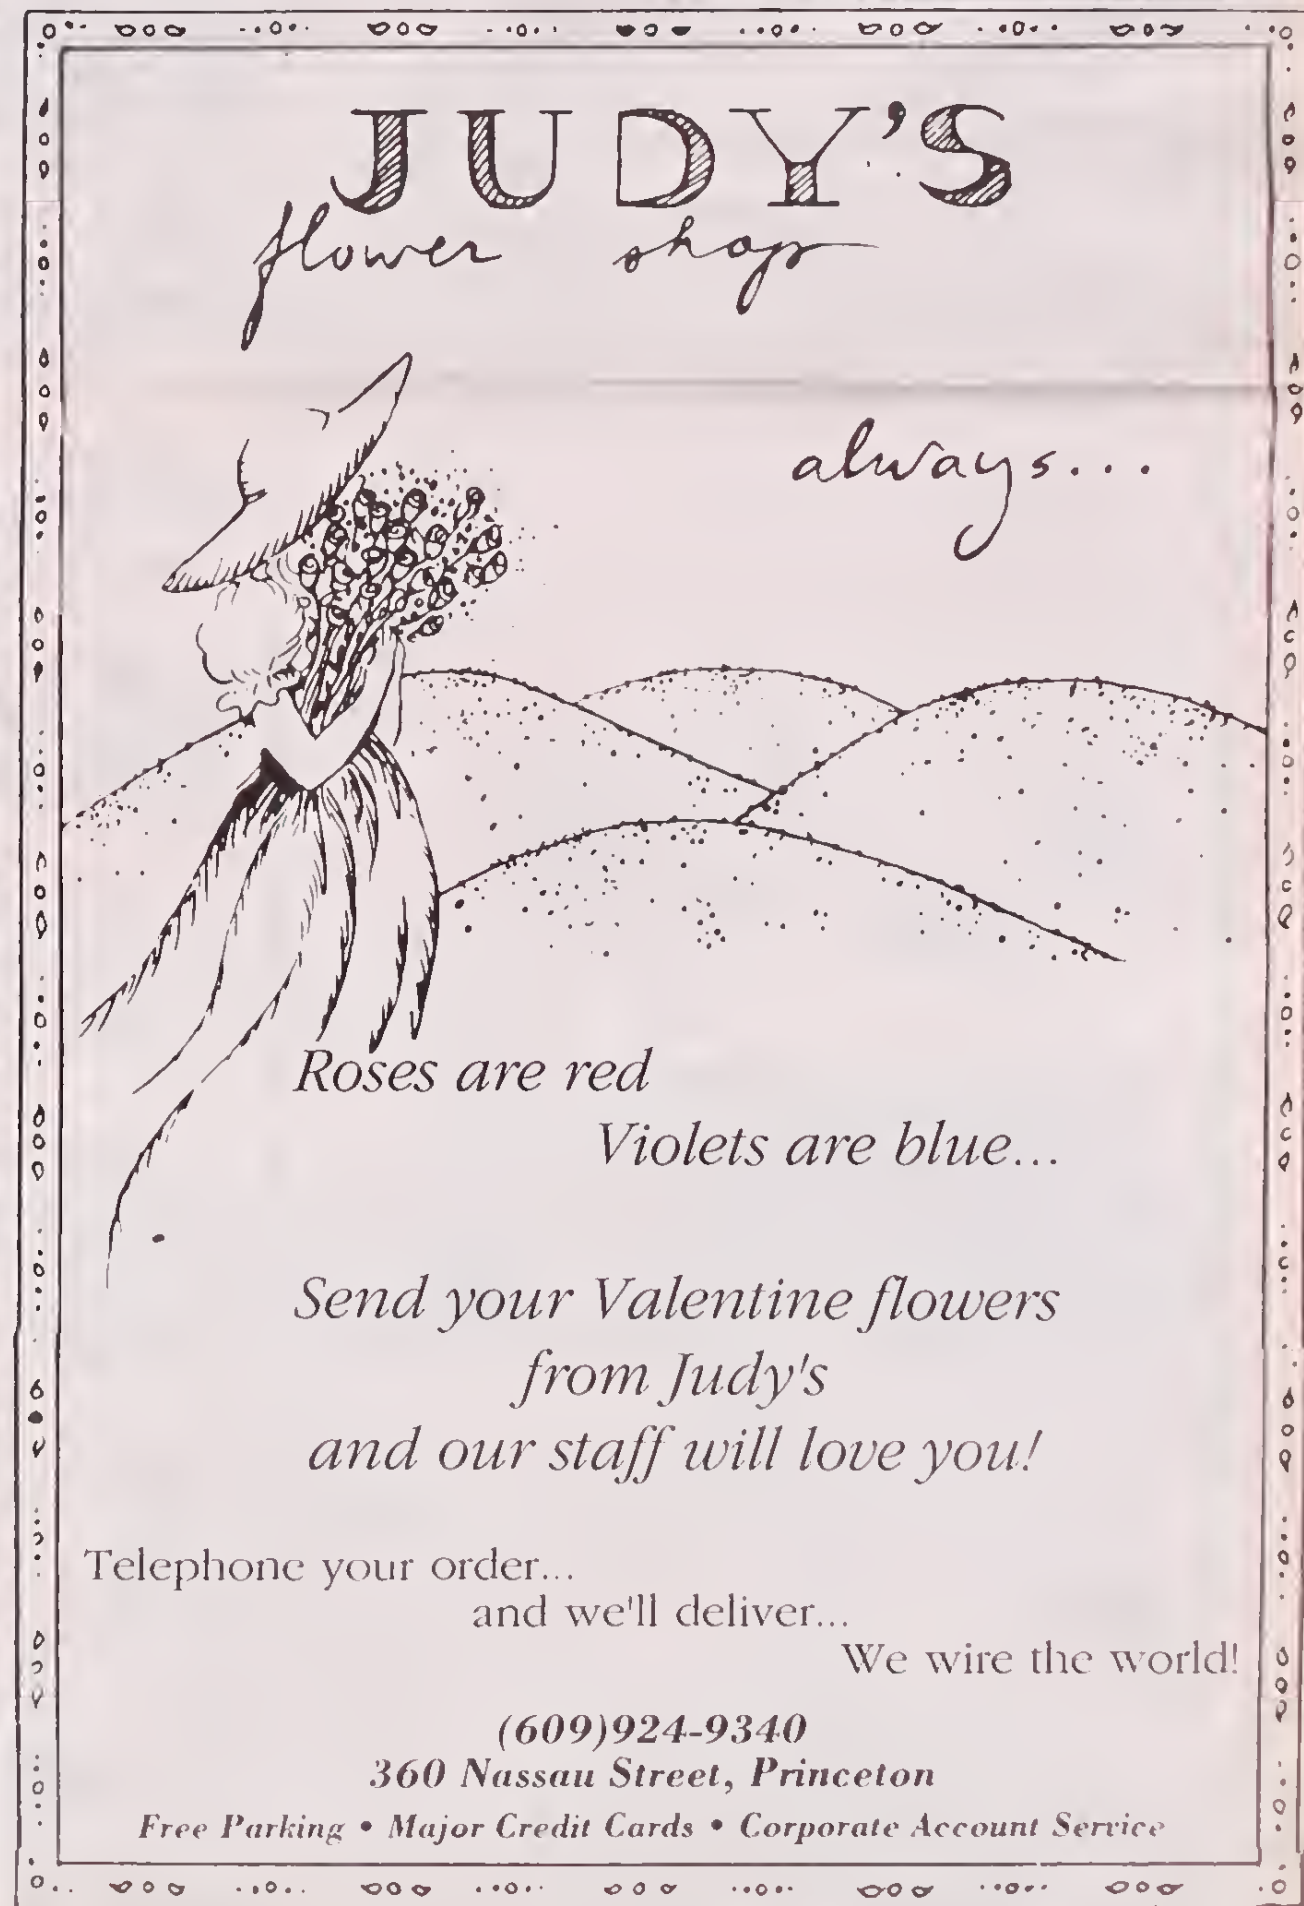 JUDY'S
flower shop
always...
Roses are red
Violets are blue...
Send your Valentine flowers
from Judy's
and our staff will love you!
Telephone your order...
and we'll deliver...
We wire the world!
(609)924-9340
360 Nassau Street, Princeton
Free Parking • Major Credit Cards • Corporate Account Service